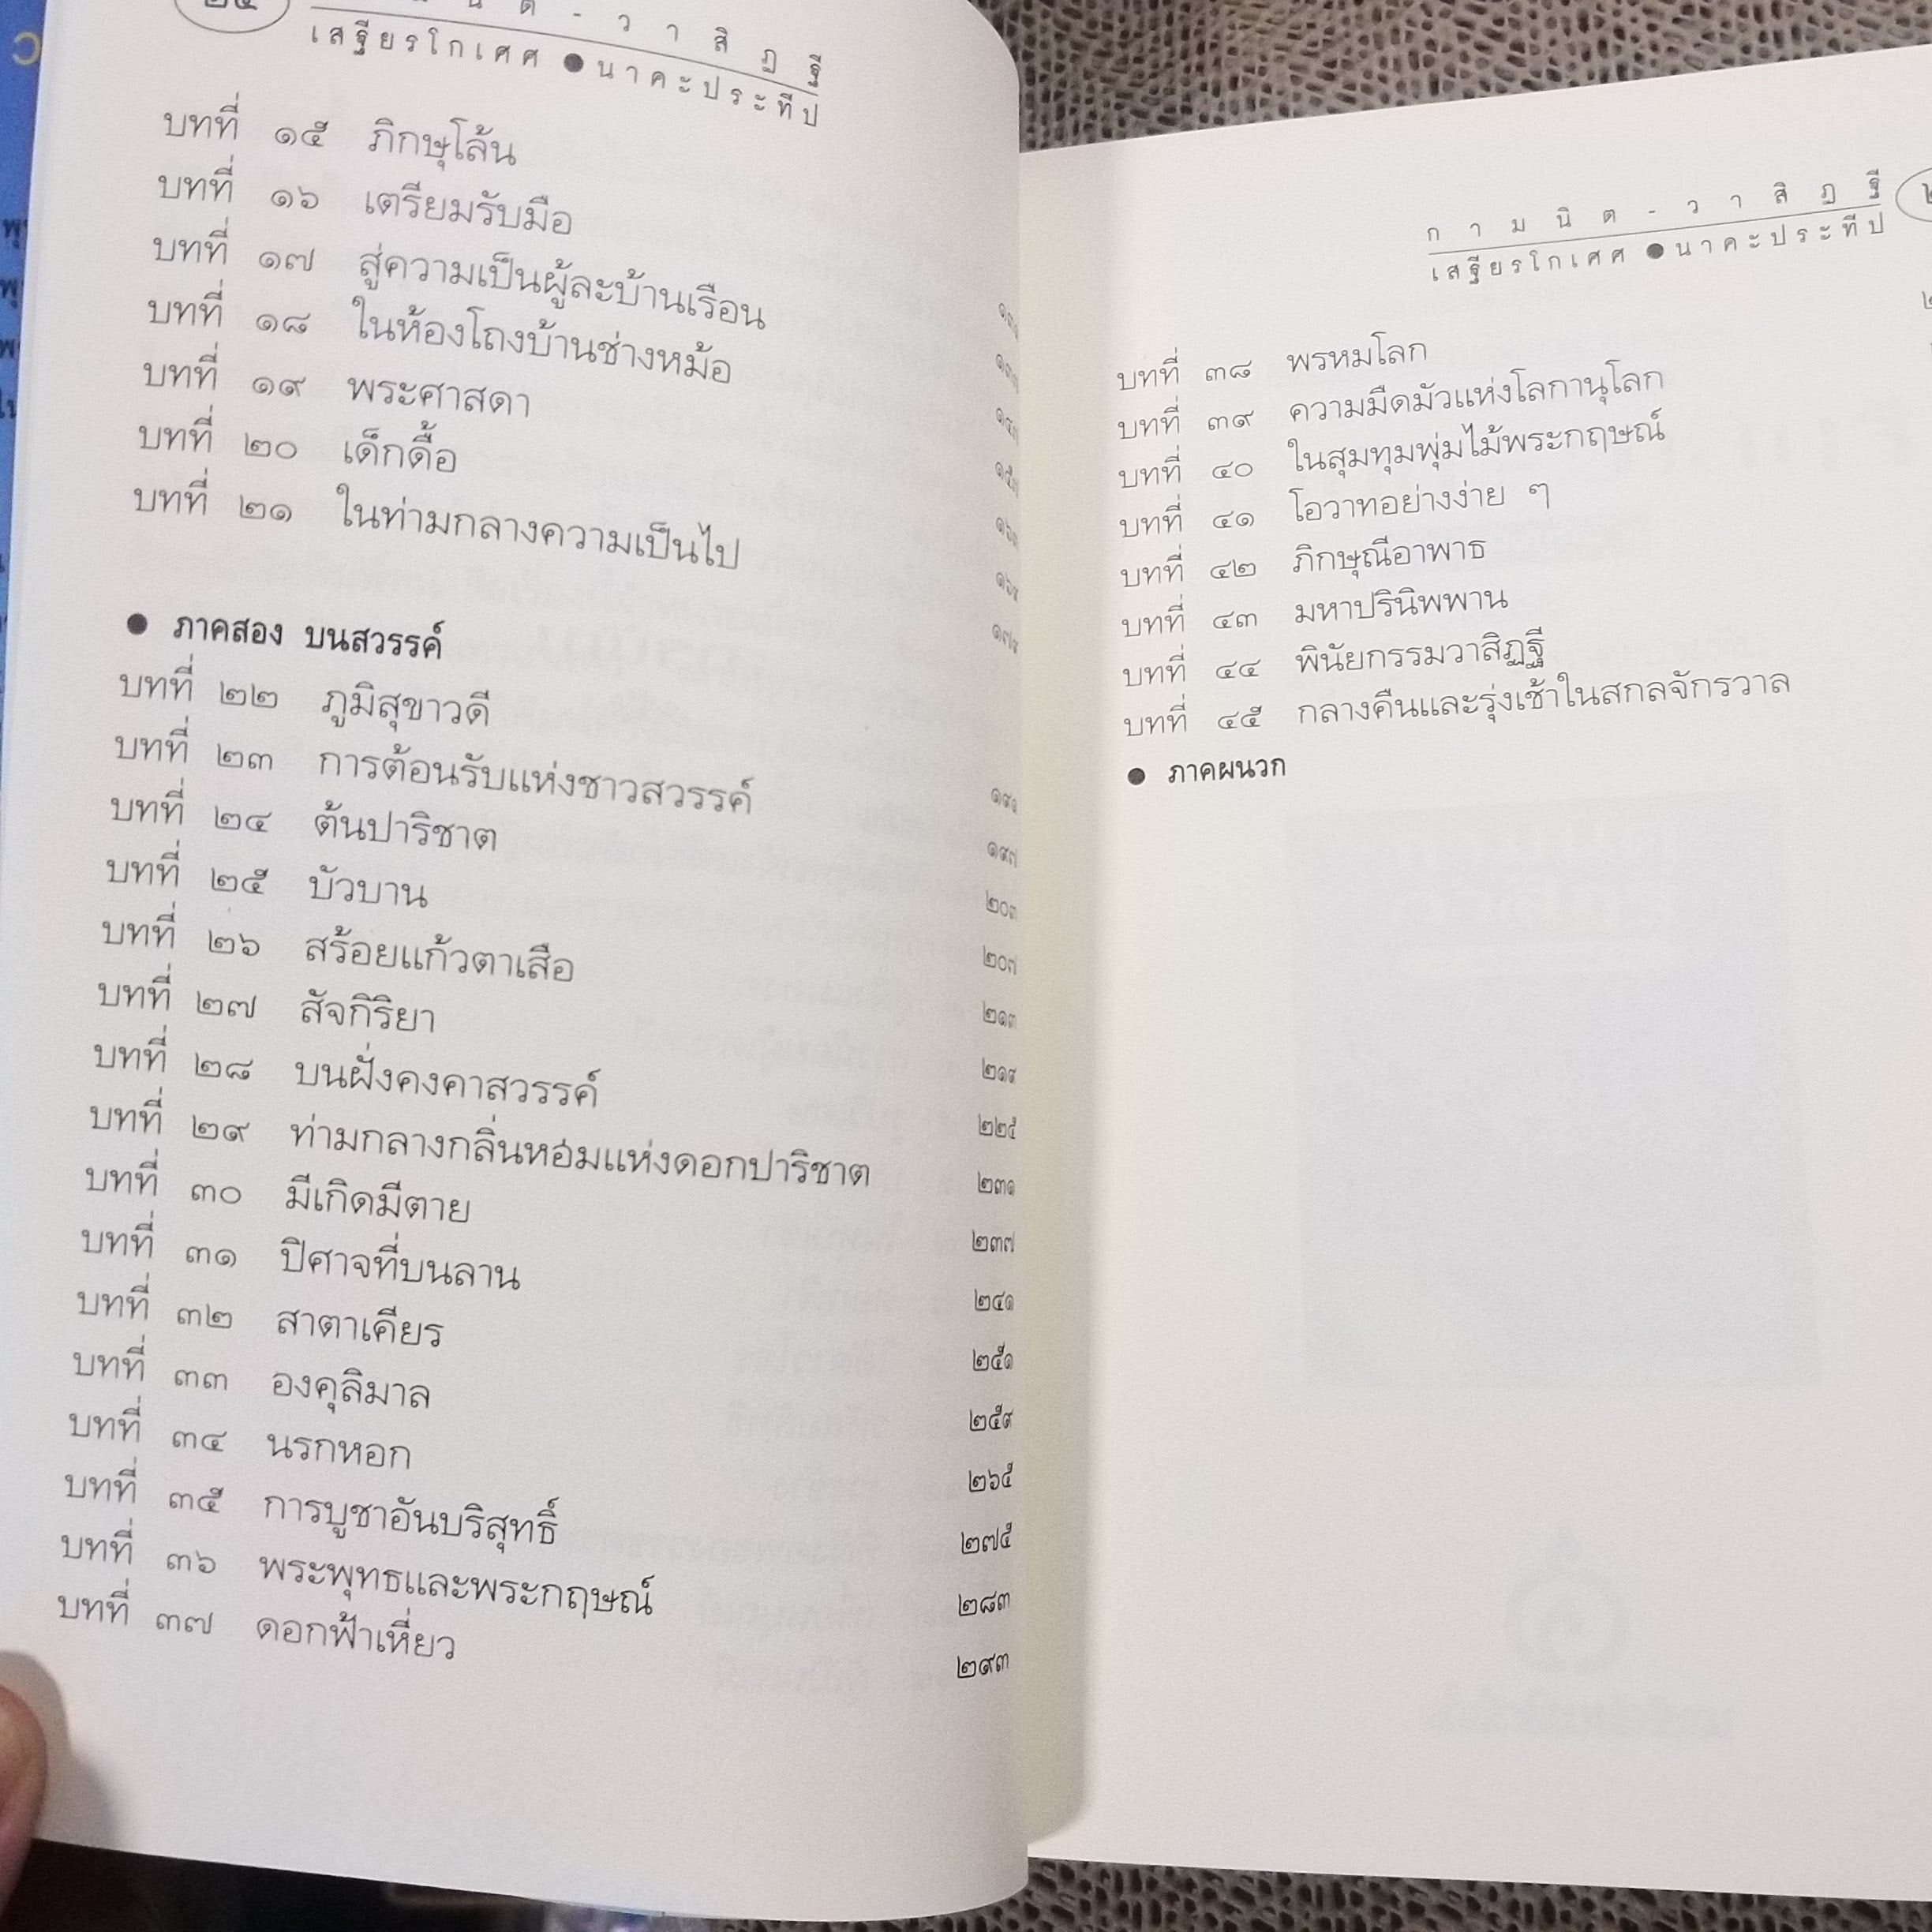 เสฐียรโกเศศ ● นาคะประทีป
บทที่ ๑๕ ภิกษุโล้น
บทที่ ๑๖ เตรียมรับมือ
บทที่ ๑๗ สู่ความเป็นผู้ละบ้านเรือน
บทที่ ๑๘ ในห้องโถงบ้านช่างหม้อ
บทที่ ๑๙ พระศาสดา
บทที่ ๒๐ เด็กดื้อ
บทที่ ๒๑ ในท่ามกลางความเป็นไป
● ภาคสอง บนสวรรค์
บทที่ ๒๒ ภูมิสุขาวดี
บทที่ ๒๓ การต้อนรับแห่งชาวสวรรค์ ๑๙๗
บทที่ ๒๔ ต้นปาริชาต ๒๐๓
บทที่ ๒๕ บัวบาน ๒๐๗
บทที่ ๒๖ สร้อยแก้วตาเสือ ๒๑๓
บทที่ ๒๗ สัจกิริยา ๒๑๙
บทที่ ๒๘ บนฝั่งคงคาสวรรค์ ๒๒๕
บทที่ ๒๙ ท่ามกลางกลิ่นหอมแห่งดอกปาริชาต ๒๓๑
บทที่ ๓๐ มีเกิดมีตาย ๒๓๗
บทที่ ๓๑ ปิศาจที่บนลาน ๒๔๑
บทที่ ๓๒ สาตาเคียร ๒๕๑
บทที่ ๓๓ องคุลิมาล ๒๕๙
บทที่ ๓๔ นรกหอก ๒๖๕
บทที่ ๓๕ การบูชาอันบริสุทธิ์ ๒๗๕
บทที่ ๓๖ พระพุทธและพระกฤษณ์ ๒๘๓
บทที่ ๓๗ ดอกฟ้าเหี่ยว ๒๙๓
กามนิต-วาสิฏฐี
เสฐียรโกเศศ ● นาคะประทีป
บทที่ ๓๘ พรหมโลก
บทที่ ๓๙ ความมืดมัวแห่งโลกานุโลก
บทที่ ๔๐ ในสุมทุมพุ่มไม้พระกฤษณ์
บทที่ ๔๑ โอวาทอย่างง่าย ๆ
บทที่ ๔๒ ภิกษุณีอาพาธ
บทที่ ๔๓ มหาปรินิพพาน
บทที่ ๔๔ พินัยกรรมวาสิฏฐี
บทที่ ๔๕ กลางคืนและรุ่งเช้าในสกลจักรวาล
● ภาคผนวก